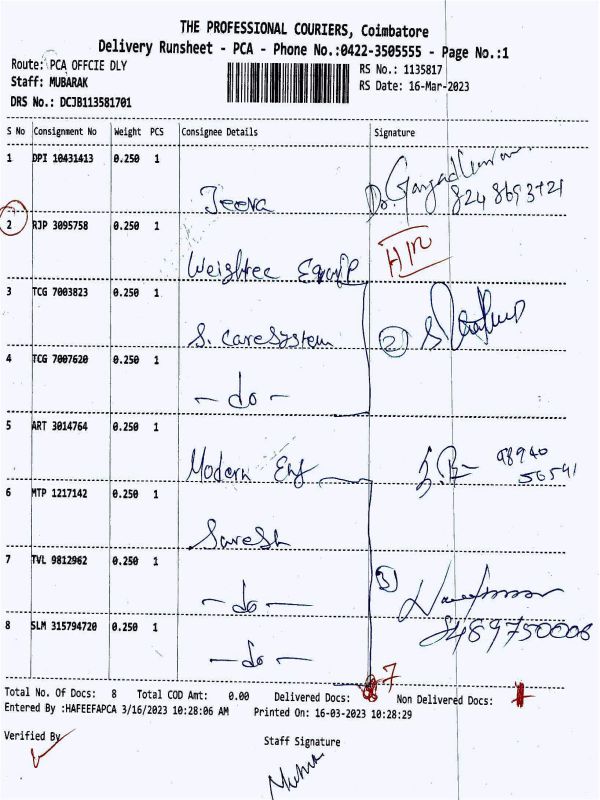 THE PROFESSIONAL COURIERS, Coimbatore
Delivery Runsheet - PCA - Phone No.:0422-3505555 - Page No.:1
Route: PCA OFFCIE DLY
Staff: MUBARAK
DRS No.: DCJB113581701
RS No.: 1135817
RS Date: 16-Mar-2023
S No Consignment No Weight PCS Consignee Details Signature
1 DPI 10431413 0.250 1
Jeeva
2 RJP 3095758 0.250 1
3 TCG 7003823 0.250 1
S. Care System 2
4 TCG 7007620 0.250 1
- do -
5 ART 3014764 0.250 1
Modern 98940
56541
6 MTP 1217142 0.250 1
Suresh
7 TVL 9812962 0.250 1
3
- do -
8 SLM 315794720 0.250 1
8489750008
- do -
7
Total No. Of Docs: 8 Total COD Amt: 0.00 Delivered Docs: Non Delivered Docs:
Entered By :HAFEEFAPCA 3/16/2023 10:28:06 AM Printed On: 16-03-2023 10:28:29
Verified By
Staff Signature